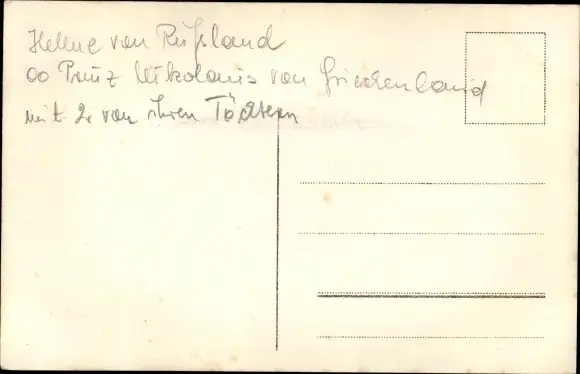 Helene von Rußland
oo Prinz Nikolaus von Griechenland
mit 2 von ihren Töchtern